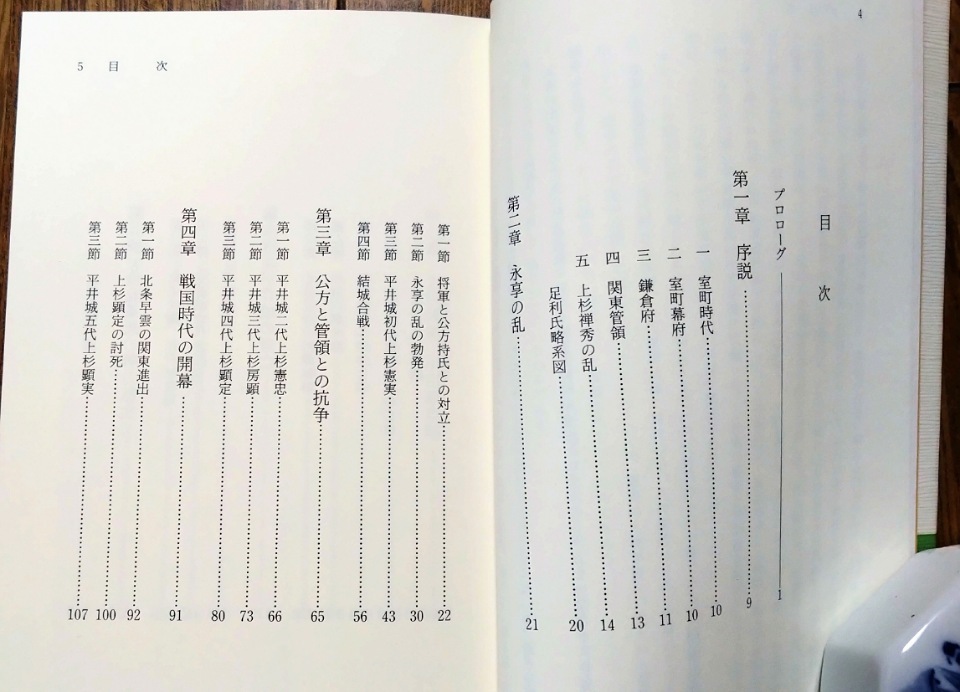 4
目次
プロローグ 1
第一章 序説………9
一 室町時代………10
二 室町幕府………10
三 鎌倉府………11
四 関東管領………13
五 上杉禅秀の乱………14
足利氏略系図………20
第二章 永享の乱………21
5 目次
第一節 将軍と公方持氏との対立………22
第二節 永享の乱の勃発………30
第三節 平井城初代上杉憲実………43
第四節 結城合戦………56
第三章 公方と管領との抗争………65
第一節 平井城二代上杉憲忠………66
第二節 平井城三代上杉房顕………73
第三節 平井城四代上杉顕定………80
第四章 戦国時代の開幕………91
第一節 北条早雲の関東進出………92
第二節 上杉顕定の討死………100
第三節 平井城五代上杉顕実………107